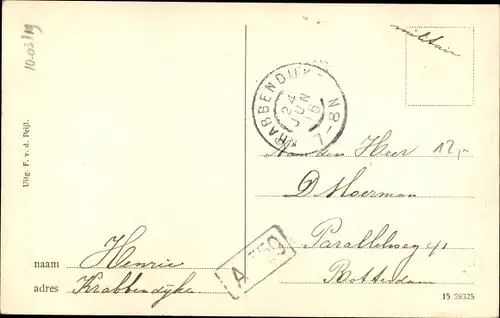 10-03/19
Uitg. F. v. d. Peijl.
militair
KRABBENDIJKE
24
JUN
16
7-8N
Aan den Heer
12,-
D Moerman
Parallelweg 41
Rotterdam
Henrie
naam
adres Krabbendijke
A
15 28325